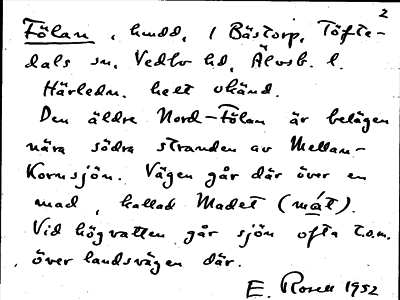 2
Fölan, hmdd, i Bästorp, Töfte-
dals sn. Vedbo hd, Älvsb. l.
Härledn. helt okänd.
Den äldre Nord-Fölan är belägen
nära södra stranden av Mellan-
Kornsjön. Vägen går där över en
mad, kallad Madet (mǻt).
Vid högvatten går sjön ofta t.o.m.
över landsvägen där.
E. Rosell 1952